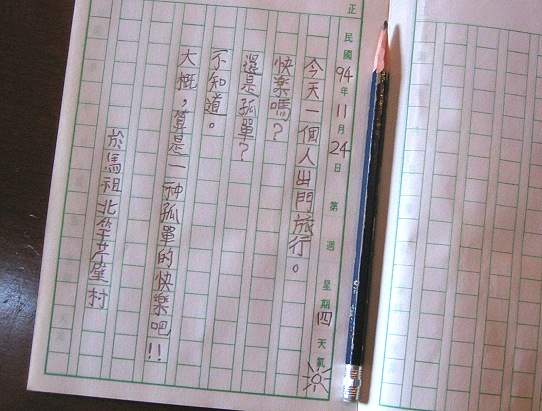 正
民國94年11月24日 第 週 星期四 天氣
今天一個人出門旅行。
快樂嗎？
還是孤單？
不知道。
大概，算是一种孤單的快樂吧!!
於馬祖北竿芹壁村